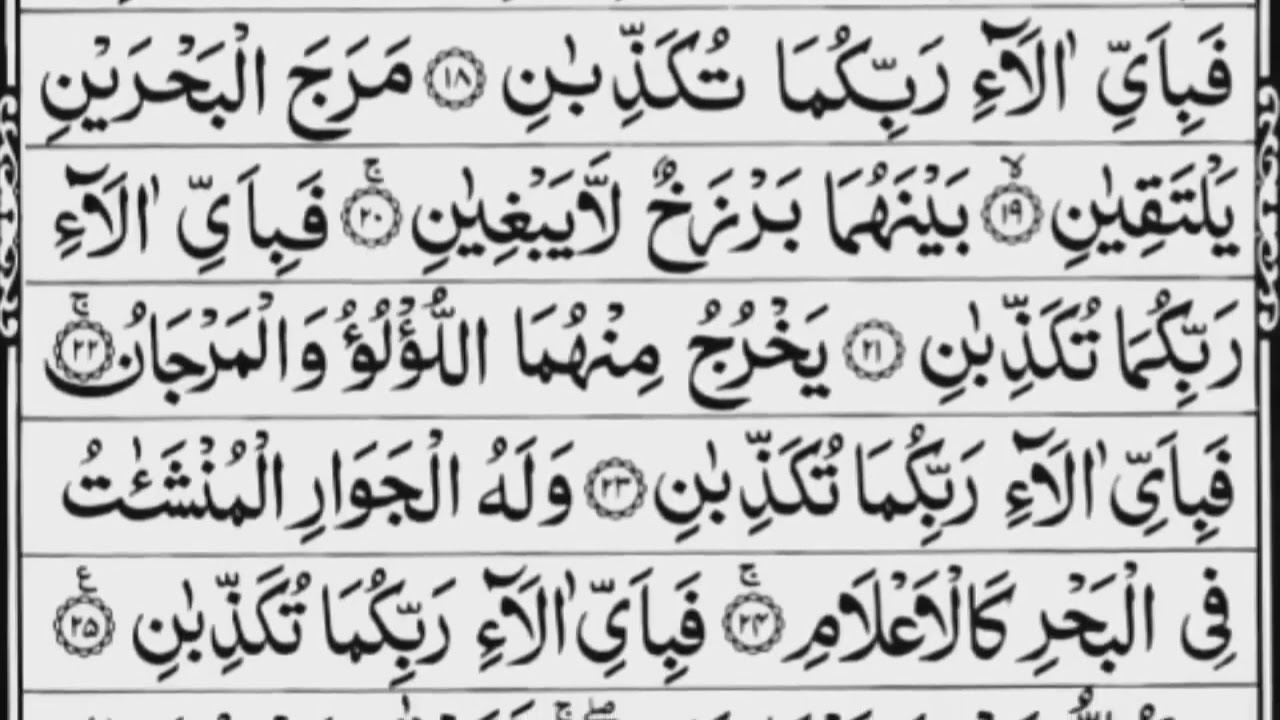 فَبِاَىِّ اٰلَآءِ رَبِّكُمَا تُكَذِّبٰنِ ۝۱۸ مَرَجَ الْبَحْرَيْنِ
يَلْتَقِيٰنِ ۝۱۹ۙ بَيْنَهُمَا بَرْزَخٌ لَّا يَبْغِيٰنِ ۝۲۰ۚ فَبِاَىِّ اٰلَآءِ
رَبِّكُمَا تُكَذِّبٰنِ ۝۲۱ يَخْرُجُ مِنْهُمَا اللُّؤْلُؤُ وَالْمَرْجَانُ ۝۲۲ۚ
فَبِاَىِّ اٰلَآءِ رَبِّكُمَا تُكَذِّبٰنِ ۝۲۳ وَلَهُ الْجَوَارِ الْمُنْشَـٰٔتُ
فِى الْبَحْرِ كَالْاَعْلَامِ ۝۲۴ۚ فَبِاَىِّ اٰلَآءِ رَبِّكُمَا تُكَذِّبٰنِ ۝۲۵ ع